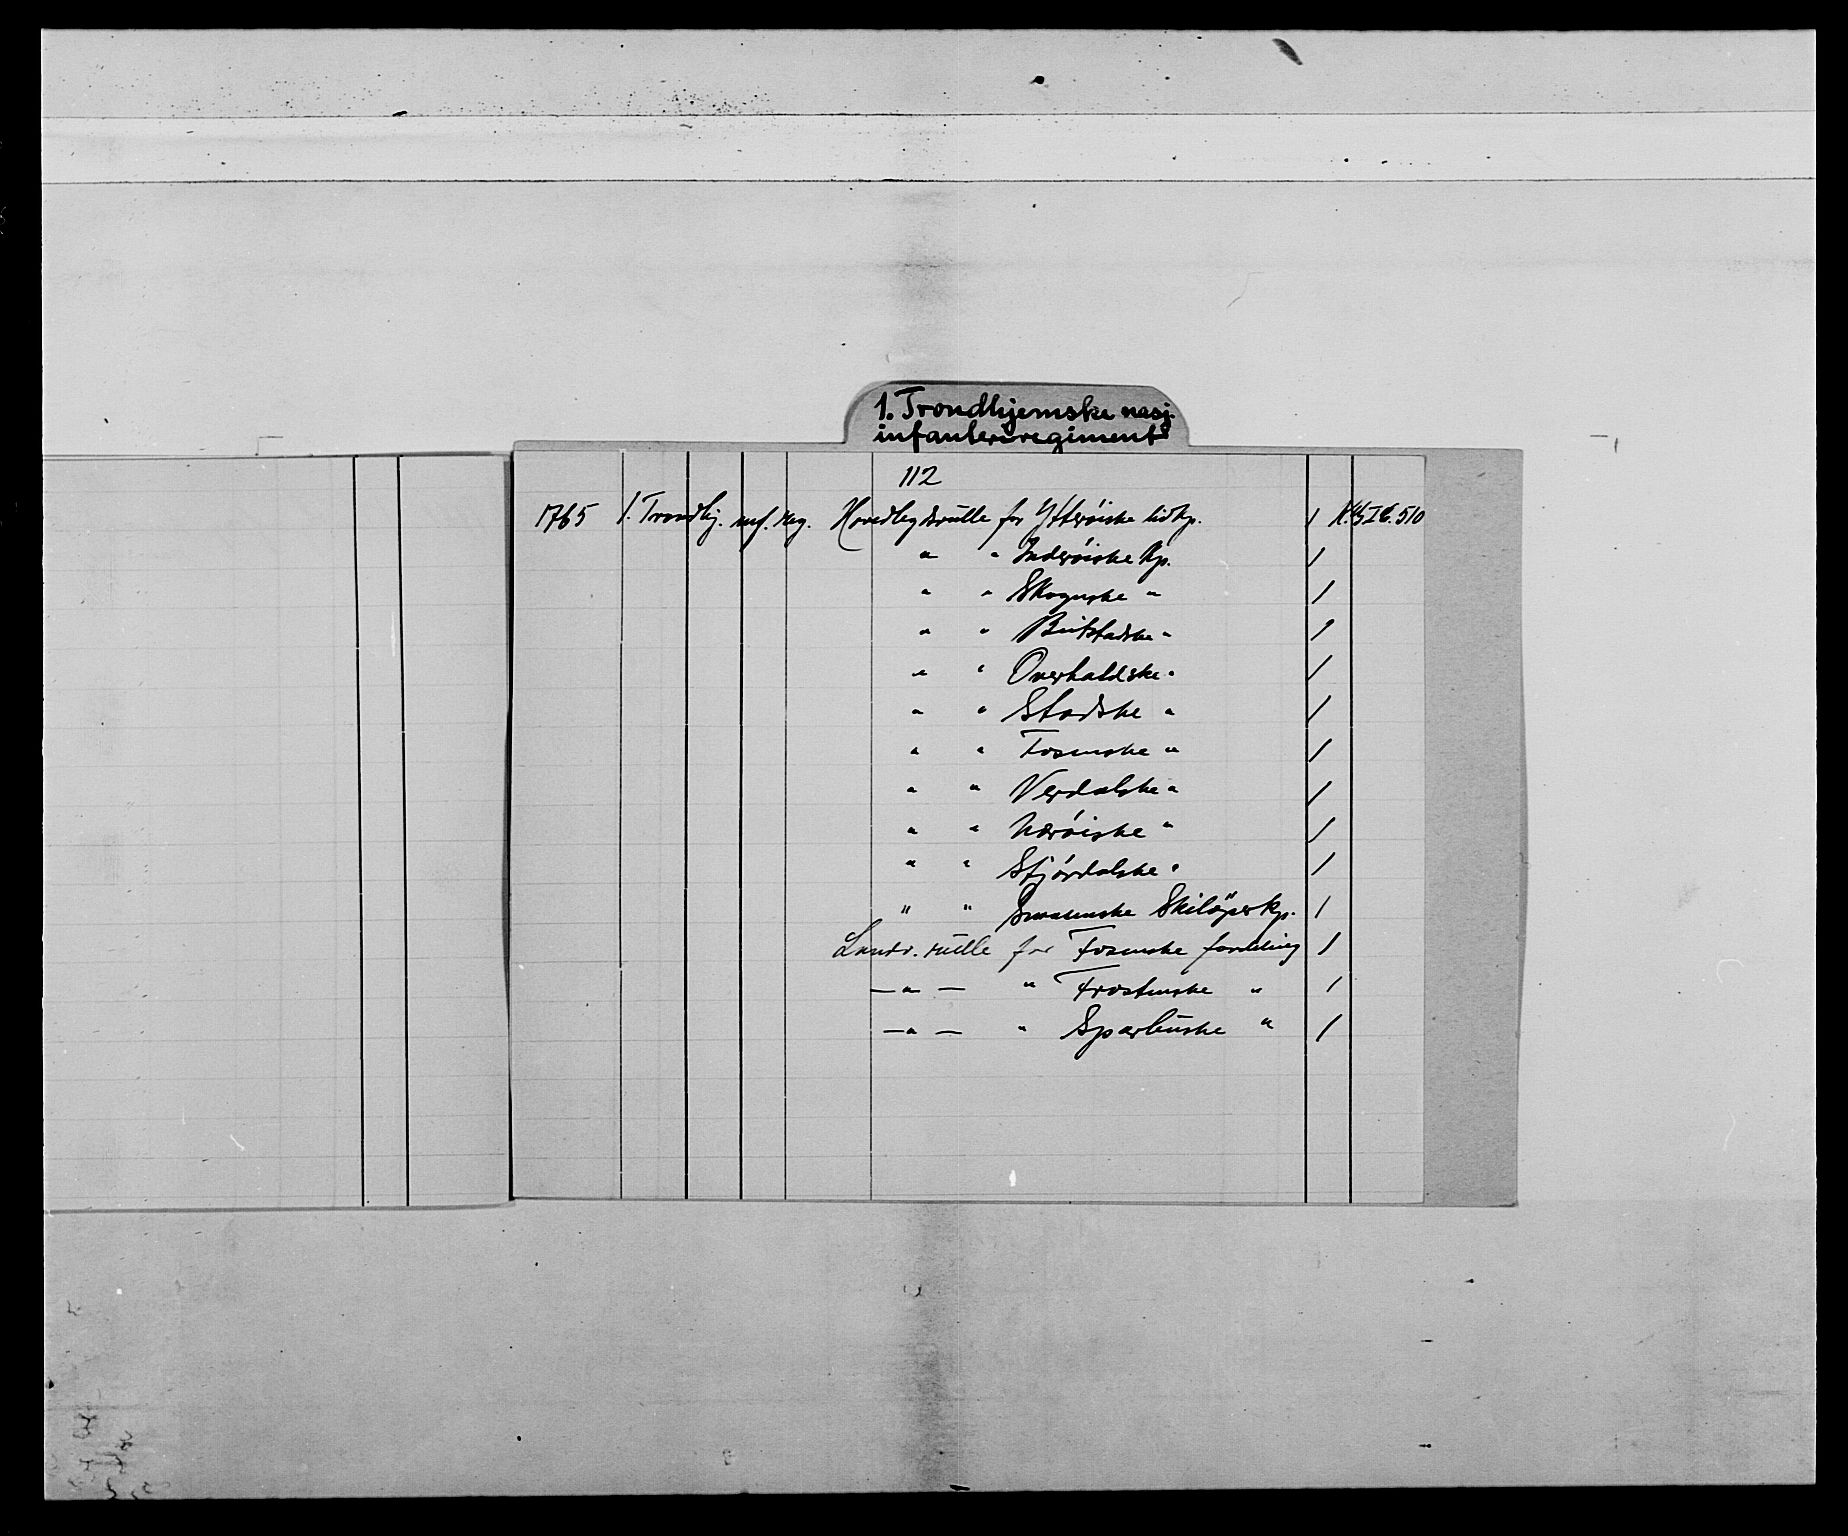 1. Trondhjemske nasj.
infanteriregiment
112
1765 1. Trondhj. inf. reg. Hovedlegdsrulle for Ytterøiske liv kp. 1 510
" " Inderøiske kp. 1
" " Skognske " 1
" " Beitstadske " 1
" " Overhaldske " 1
" " Stodske " 1
" " Fosenske " 1
" " Verdalske " 1
" " Nærøiske " 1
" " Stjørdalske " 1
" " Snaasenske Skiløperkp. 1
Landv. rulle for Fosenske fordeling 1
— " — " Frostenske " 1
— " — " Sparbuske " 1